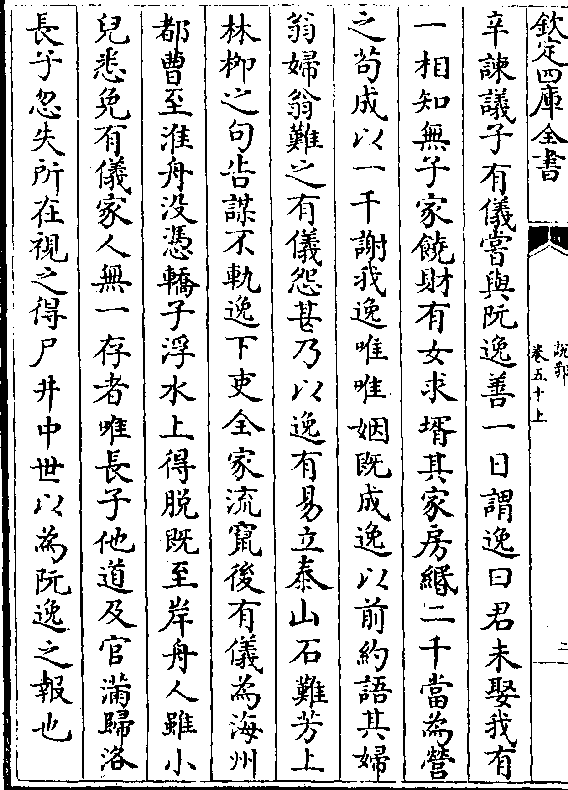 欽定四庫全書
說郛
卷五十上
二
辛諫議子有儀嘗與阮逸善一日謂逸曰君未娶我有
一相知無子家饒財有女求壻其家房緡二千當為營
之茍成以一千謝我逸唯唯姻既成逸以前約語其婦
翁婦翁難之有儀怨甚乃以逸有易立泰山石難芳上
林栁之句告謀不軌逸下吏全家流竄後有儀為海州
都曹至淮舟没憑轎子浮水上得脱既至岸舟人雖小
兒悉免有儀家人無一存者唯長子他道及官滿歸洛
長子忽失所在視之得尸井中世以為阮逸之報也